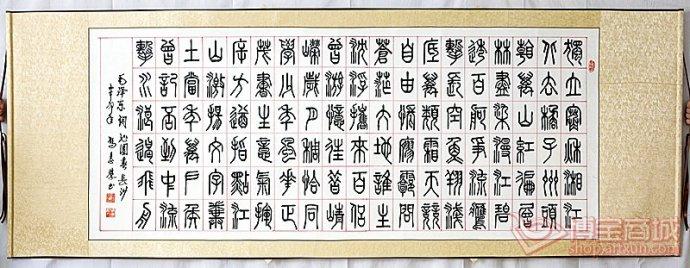 獨立寒秋湘江
北去橘子洲頭
看萬山紅遍層
林盡染漫江碧
透百舸爭流鷹
擊長空魚翔淺
底萬類霜天競
自由悵寥廓問
蒼茫大地誰主
沈浮攜來百侶
曾游憶往昔崢
嶸歲月稠恰同
學少年風華正
茂書生意氣揮
斥方遒指點江
山激揚文字糞
土當年萬戶侯
曾記否到中流
擊水浪遏飛舟
毛澤東詞沁園春長沙
年 書
博宝商城
shopyanxun.com